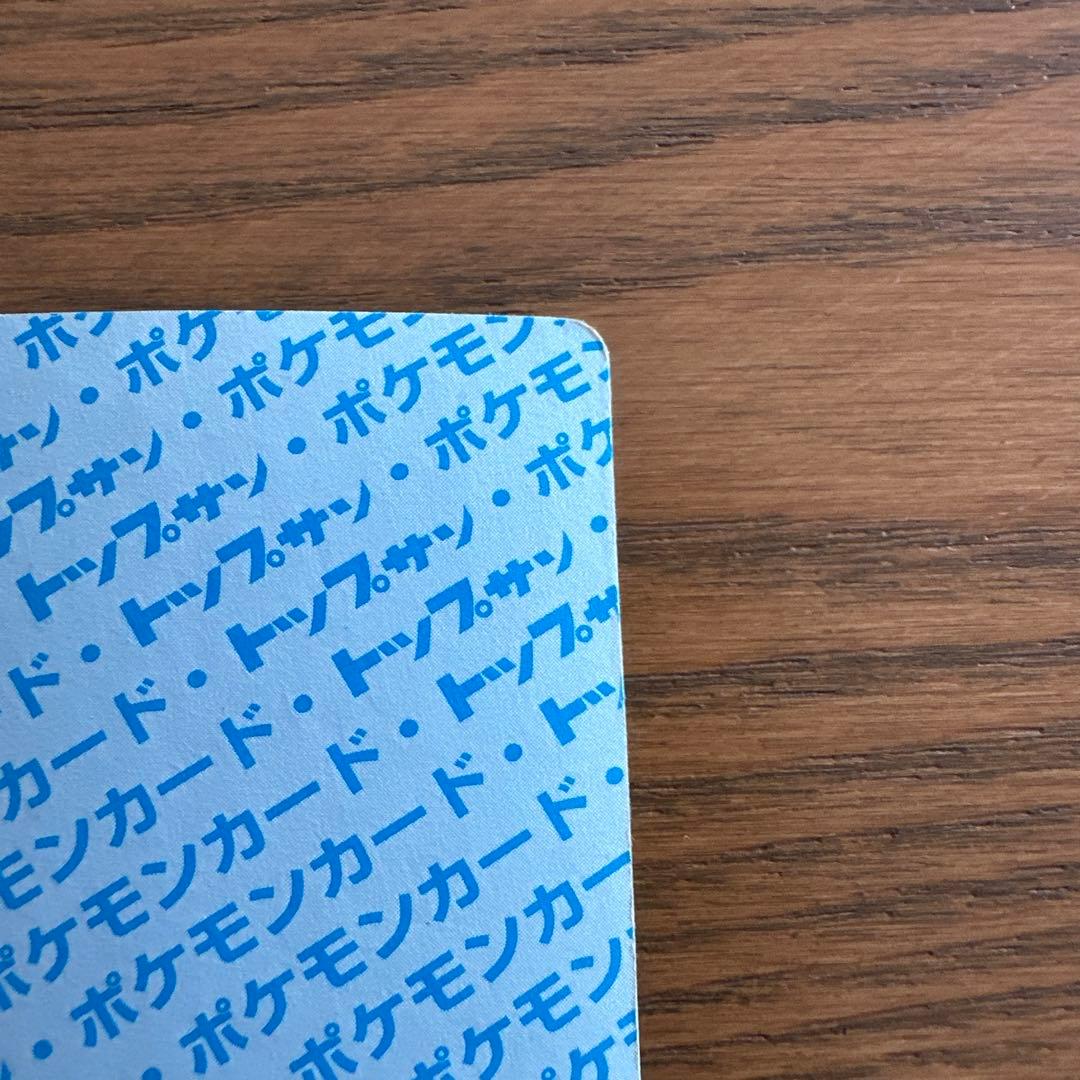 ポ
サン・ポケ
プサン・ポケモ
トップサン・ポケモン
ド・トップサン・ポケモン
カード・トップサン・ポケ
モンカード・トップサン・
ポケモンカード・トップサ
・ポケモンカード・トッ
・ポケモンカード・
ポケモンカー
ポケモン
ケモ